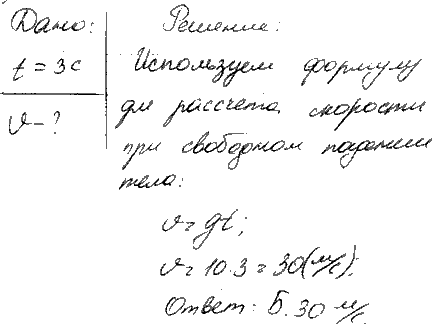 Дано:
t = 3с
v - ?
Решение:
Используем формулу
для рассчета скорости
при свободном падении
тела:
v = gt;
v = 10·3 = 30(м/с).
Ответ: Б. 30 м/с.